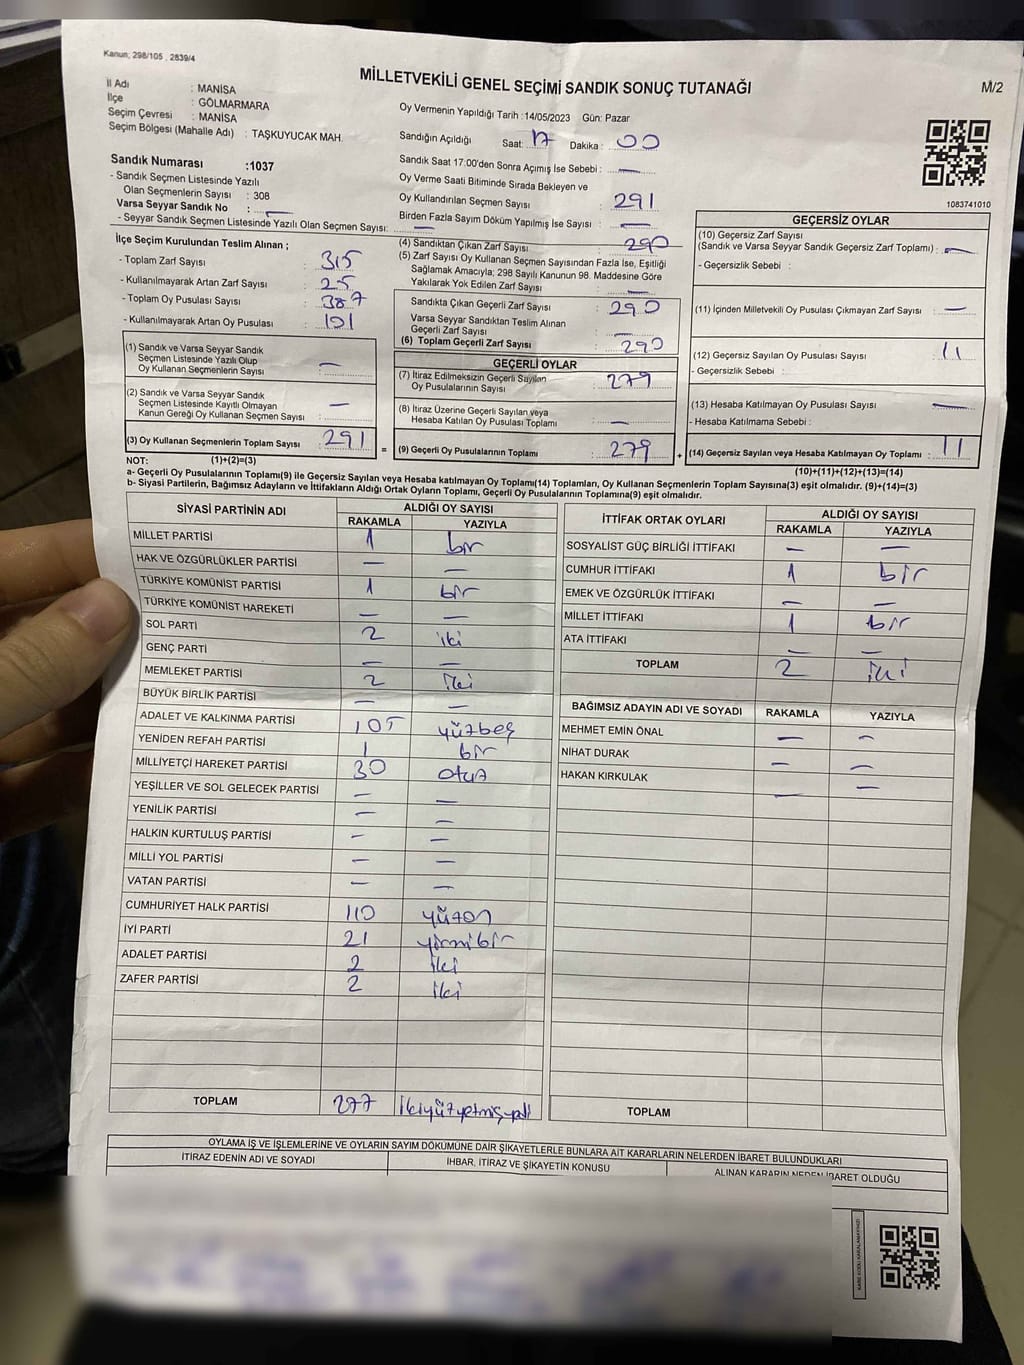 Kanun; 298/105 , 2839/4
MİLLETVEKİLİ GENEL SEÇİMİ SANDIK SONUÇ TUTANAĞI
M/2
İl Adı : MANİSA
İlçe : GÖLMARMARA
Seçim Çevresi : MANİSA
Seçim Bölgesi (Mahalle Adı) : TAŞKUYUCAK MAH.
Sandık Numarası :1037
- Sandık Seçmen Listesinde Yazılı
Olan Seçmenlerin Sayısı : 308
Varsa Seyyar Sandık No : —
- Seyyar Sandık Seçmen Listesinde Yazılı Olan Seçmen Sayısı: —
Oy Vermenin Yapıldığı Tarih :14/05/2023 Gün: Pazar
Sandığın Açıldığı Saat: 17 Dakika : 00
Sandık Saat 17:00'den Sonra Açımış İse Sebebi : —
Oy Verme Saati Bitiminde Sırada Bekleyen ve
Oy Kullandırılan Seçmen Sayısı : 291
Birden Fazla Sayım Döküm Yapılmış İse Sayısı : —
1083741010
İlçe Seçim Kurulundan Teslim Alınan ;
- Toplam Zarf Sayısı : 315
- Kullanılmayarak Artan Zarf Sayısı : 25
- Toplam Oy Pusulası Sayısı : 387
- Kullanılmayarak Artan Oy Pusulası : 101
(1) Sandık ve Varsa Seyyar Sandık
Seçmen Listesinde Yazılı Olup
Oy Kullanan Seçmenlerin Sayısı : —
(2) Sandık ve Varsa Seyyar Sandık
Seçmen Listesinde Kayıtlı Olmayan
Kanun Gereği Oy Kullanan Seçmen Sayısı : —
(3) Oy Kullanan Seçmenlerin Toplam Sayısı : 291
=
(4) Sandıktan Çıkan Zarf Sayısı : 290
(5) Zarf Sayısı Oy Kullanan Seçmen Sayısından Fazla İse, Eşitliği
Sağlamak Amacıyla; 298 Sayılı Kanunun 98. Maddesine Göre
Yakılarak Yok Edilen Zarf Sayısı : —
Sandıkta Çıkan Geçerli Zarf Sayısı : 290
Varsa Seyyar Sandıktan Teslim Alınan
Geçerli Zarf Sayısı : —
(6) Toplam Geçerli Zarf Sayısı : 290
GEÇERLİ OYLAR
(7) İtiraz Edilmeksizin Geçerli Sayılan
Oy Pusulalarının Sayısı : 279
(8) İtiraz Üzerine Geçerli Sayılan veya
Hesaba Katılan Oy Pusulası Toplamı : —
(9) Geçerli Oy Pusulalarının Toplamı : 279
+
GEÇERSİZ OYLAR
(10) Geçersiz Zarf Sayısı
(Sandık ve Varsa Seyyar Sandık Geçersiz Zarf Toplamı) : —
- Geçersizlik Sebebi :
(11) İçinden Milletvekili Oy Pusulası Çıkmayan Zarf Sayısı : —
(12) Geçersiz Sayılan Oy Pusulası Sayısı : 11
- Geçersizlik Sebebi :
(13) Hesaba Katılmayan Oy Pusulası Sayısı : —
- Hesaba Katılmama Sebebi :
(14) Geçersiz Sayılan veya Hesaba Katılmayan Oy Toplamı : 11
NOT: (1)+(2)=(3)
(10)+(11)+(12)+(13)=(14)
a- Geçerli Oy Pusulalarının Toplamı(9) ile Geçersiz Sayılan veya Hesaba Katılmayan Oy Toplamı(14) Toplamları, Oy Kullanan Seçmenlerin Toplam Sayısına(3) eşit olmalıdır. (9)+(14)=(3)
b- Siyasi Partilerin, Bağımsız Adayların ve İttifakların Aldığı Ortak Oyların Toplamı, Geçerli Oy Pusulalarının Toplamına(9) eşit olmalıdır.
SİYASİ PARTİNİN ADI ALDIĞI OY SAYISI
RAKAMLA YAZIYLA
MİLLET PARTİSİ 1 bir
HAK VE ÖZGÜRLÜKLER PARTİSİ — —
TÜRKİYE KOMÜNİST PARTİSİ 1 bir
TÜRKİYE KOMÜNİST HAREKETİ — —
SOL PARTİ 2 iki
GENÇ PARTİ — —
MEMLEKET PARTİSİ 2 iki
BÜYÜK BİRLİK PARTİSİ — —
ADALET VE KALKINMA PARTİSİ 105 yüzbeş
YENİDEN REFAH PARTİSİ 1 bir
MİLLİYETÇİ HAREKET PARTİSİ 30 otuz
YEŞİLLER VE SOL GELECEK PARTİSİ — —
YENİLİK PARTİSİ — —
HALKIN KURTULUŞ PARTİSİ — —
MİLLİ YOL PARTİSİ — —
VATAN PARTİSİ — —
CUMHURİYET HALK PARTİSİ 110 yüzon
İYİ PARTİ 21 yirmibir
ADALET PARTİSİ 2 iki
ZAFER PARTİSİ 2 iki
TOPLAM 277 ikiyüzyetmişyedi
İTTİFAK ORTAK OYLARI ALDIĞI OY SAYISI
RAKAMLA YAZIYLA
SOSYALİST GÜÇ BİRLİĞİ İTTİFAKI — —
CUMHUR İTTİFAKI 1 bir
EMEK VE ÖZGÜRLÜK İTTİFAKI — —
MİLLET İTTİFAKI 1 bir
ATA İTTİFAKI — —
TOPLAM 2 iki
BAĞIMSIZ ADAYIN ADI VE SOYADI RAKAMLA YAZIYLA
MEHMET EMİN ÖNAL — —
NİHAT DURAK — —
HAKAN KIRKULAK — —
TOPLAM
OYLAMA İŞ VE İŞLEMLERİNE VE OYLARIN SAYIM DÖKÜMÜNE DAİR ŞİKAYETLERLE BUNLARA AİT KARARLARIN NELERDEN İBARET BULUNDUKLARI
İTİRAZ EDENİN ADI VE SOYADI İHBAR, İTİRAZ VE ŞİKAYETİN KONUSU ALINAN KARARIN NEDEN İBARET OLDUĞU